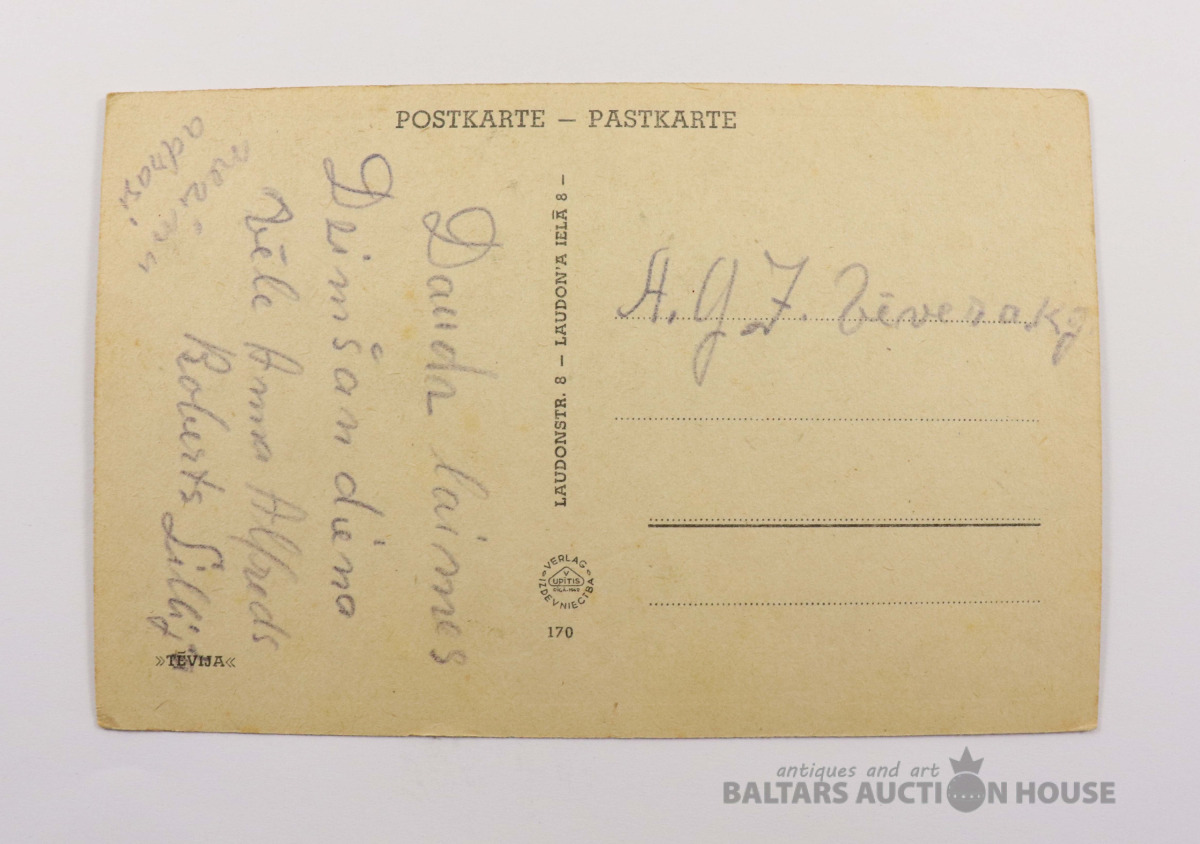 POSTKARTE — PASTKARTE
Dauda laimes
Dzimšan diena
Vēle Anna Alfreds
Roberts Lillija
adrasi
LAUDONSTR. 8 — LAUDON'A IELĀ 8 —
VERLAG
V
UPITIS
IZDEVNIECTBA
170
»TĒVIJA«
A. G. Z.
antiques and art
BALTARS AUCTION HOUSE